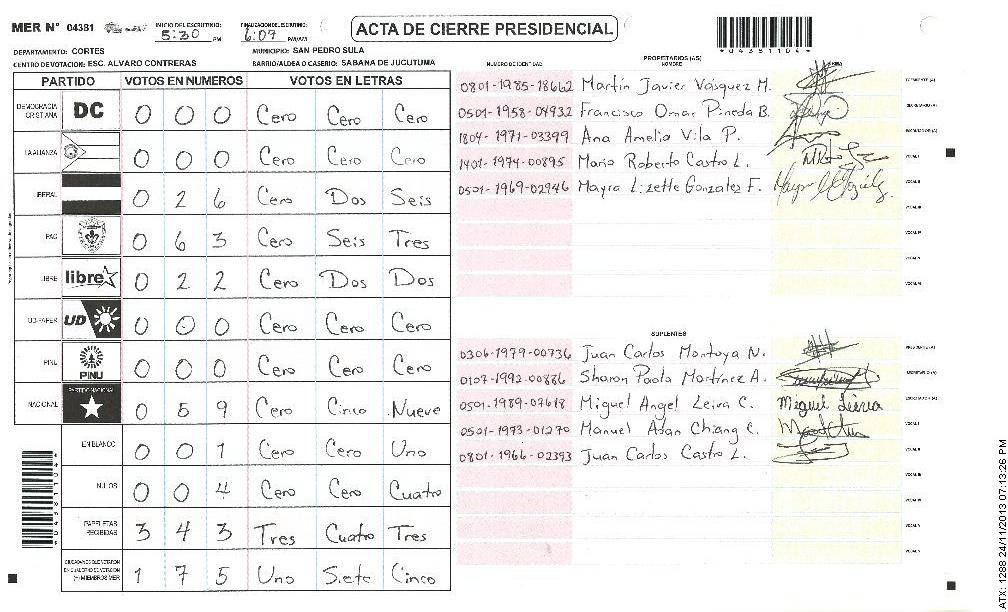 MER N° 04381
INICIO DEL ESCRUTINIO: 5:30 PM
FINALIZACION ESCRUTINIO: 6:07 PM/AM
ACTA DE CIERRE PRESIDENCIAL
*04381104*
DEPARTAMENTO: CORTES
MUNICIPIO: SAN PEDRO SULA
CENTRO DE VOTACION: ESC. ALVARO CONTRERAS
BARRIO/ALDEA O CASERIO: SABANA DE JUCUTUMA
PARTIDO VOTOS EN NUMEROS VOTOS EN LETRAS
DEMOCRACIA CRISTIANA DC 0 0 0 Cero Cero Cero
LA ALIANZA 0 0 0 Cero Cero Cero
LIBERAL 0 2 6 Cero Dos Seis
PAC 0 6 3 Cero Seis Tres
LIBRE libre 0 2 2 Cero Dos Dos
UD-FAPER UD 0 0 0 Cero Cero Cero
PINU PINU 0 0 0 Cero Cero Cero
NACIONAL PARTIDO NACIONAL 0 5 9 Cero Cinco Nueve
EN BLANCO 0 0 1 Cero Cero Uno
NULOS 0 0 4 Cero Cero Cuatro
PAPELETAS RECIBIDAS 3 4 3 Tres Cuatro Tres
CIUDADANOS QUE VOTARON EN CUADERNO DE VOTACION (+) MIEMBROS MER 1 7 5 Uno Siete Cinco
PROPIETARIOS (AS)
NUMERO DE IDENTIDAD NOMBRE FIRMA
0801-1985-18662 Martín Javier Vásquez M. PRESIDENTE (A)
0501-1958-04932 Francisco Omar Pineda B. SECRETARIO (A)
1804-1971-03399 Ana Amelia Vila P. ESCRUTADOR (A)
1401-1974-00895 Mario Roberto Castro L. VOCAL I
0501-1969-02946 Mayra Lizette Gonzalez F. VOCAL II
VOCAL III
VOCAL IV
VOCAL V
VOCAL VI
SUPLENTES
0306-1979-00736 Juan Carlos Montoya N. PRESIDENTE (A)
0107-1992-00886 Sharon Paola Martínez A. SECRETARIO (A)
0501-1989-07618 Miguel Angel Leiva C. Miguel Leiva ESCRUTADOR (A)
0501-1973-01270 Manuel Adan Chiang C. VOCAL I
0801-1966-02393 Juan Carlos Castro L. VOCAL II
VOCAL III
VOCAL IV
VOCAL V
VOCAL VI
ATX: 1288 24/11/2013 07:13:26 PM